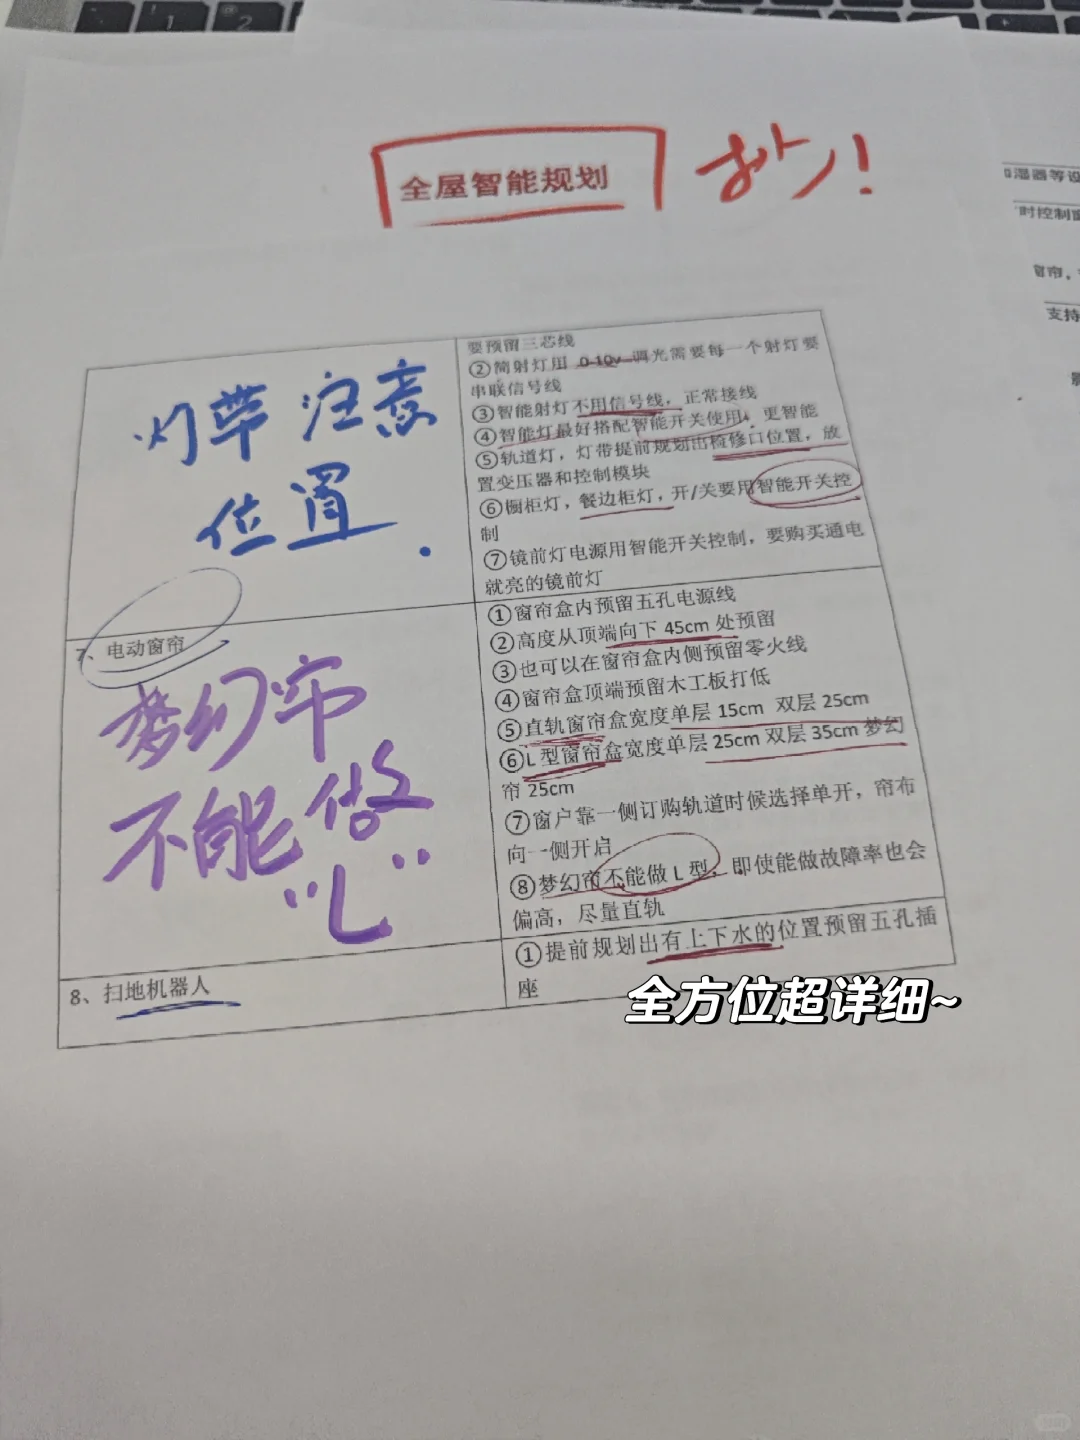 1
2
全屋智能规划
抄!
加湿器等设
时控制窗
窗帘,
支持
要预留三芯线
②筒射灯用 0-10v 调光需要每一个射灯要
串联信号线
③智能射灯不用信号线,正常接线
④智能灯最好搭配智能开关使用,更智能
⑤轨道灯,灯带提前规划出检修口位置,放
置变压器和控制模块
⑥橱柜灯,餐边柜灯,开/关要用智能开关控
制
⑦镜前灯电源用智能开关控制,要购买通电
就亮的镜前灯
灯带 注意
位置.
7、电动窗帘
梦幻帘
不能做
"L"
①窗帘盒内预留五孔电源线
②高度从顶端向下 45cm 处预留
③也可以在窗帘盒内侧预留零火线
④窗帘盒顶端预留木工板打低
⑤直轨窗帘盒宽度单层 15cm 双层 25cm
⑥L 型窗帘盒宽度单层 25cm 双层 35cm 梦幻
帘 25cm
⑦窗户靠一侧订购轨道时候选择单开,帘布
向一侧开启
⑧梦幻帘不能做 L 型,即使能做故障率也会
偏高,尽量直轨
8、扫地机器人
①提前规划出有上下水的位置预留五孔插
座
全方位超详细~